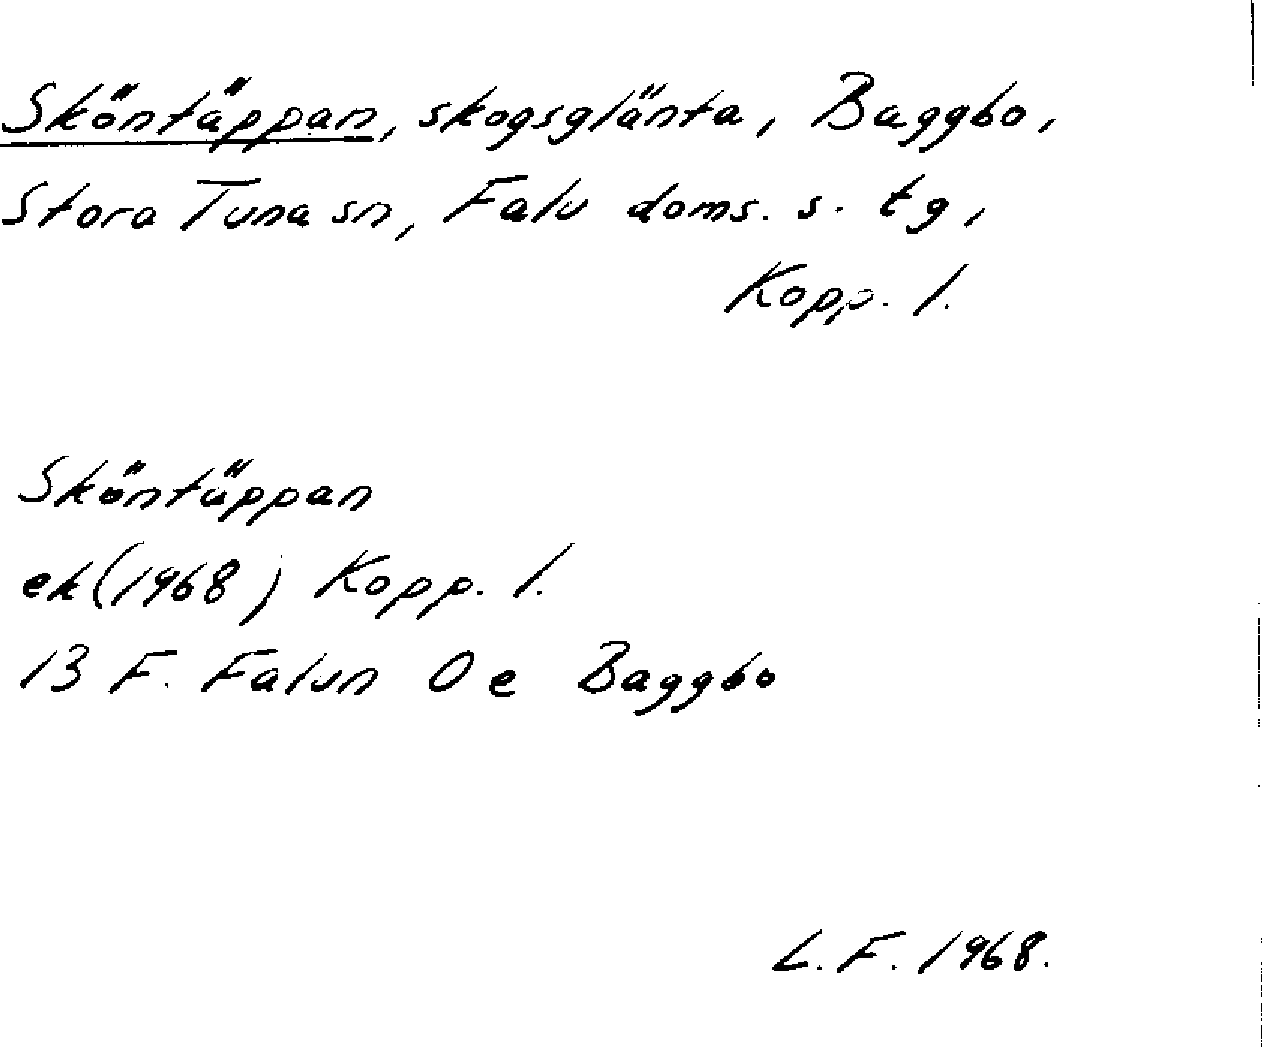 Sköntäppan, skogsglänta, Baggbo,
Stora Tuna sn, Falu doms. s. tg,
Kopp. l.
Sköntäppan
ek (1968) Kopp. l.
13 F. Falun 0 e Baggbo
L. F. 1968.